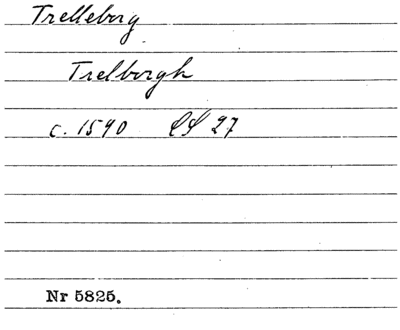 Trelleborg
Trelborgh
c. 1590 LS 27
Nr 5825.